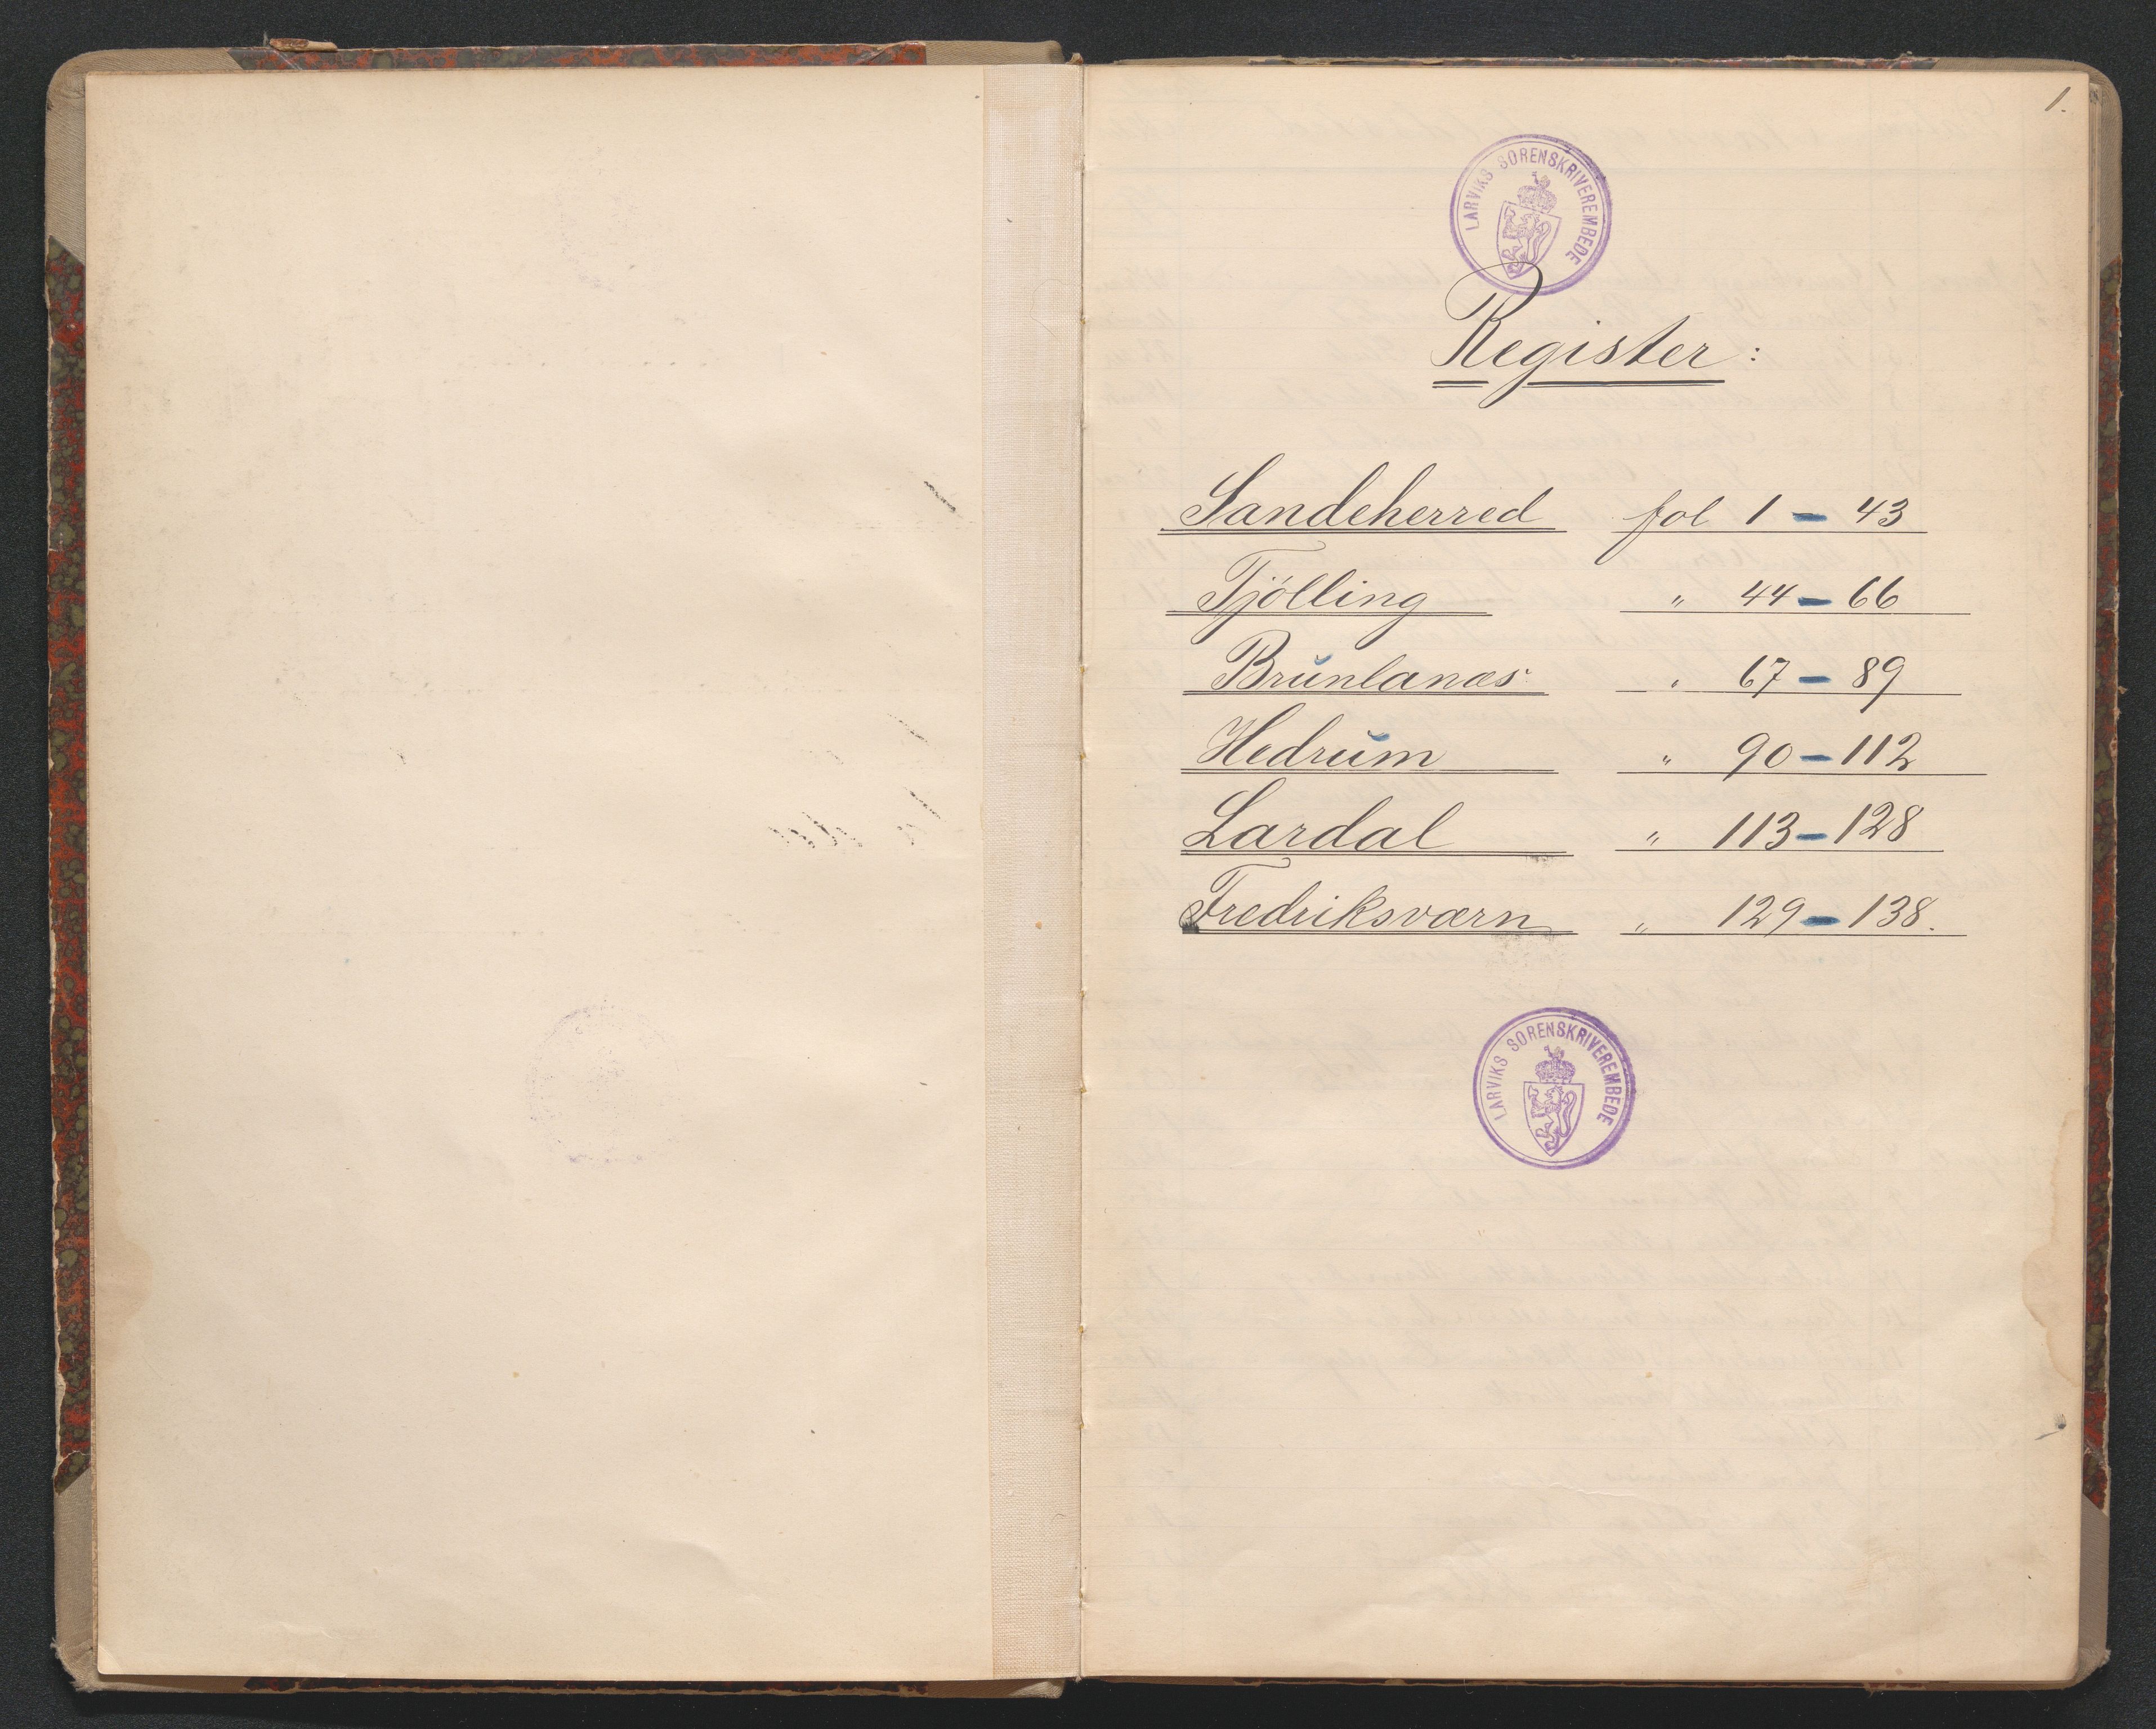 1.
LARVIKS SORENSKRIVEREMBEDE
Register:
Sandeherred fol 1 - 43
Tjölling " 44 - 66
Brunlanæs " 67 - 89
Hedrum " 90 - 112
Lardal " 113 - 128
Fredriksværn " 129 - 138.
LARVIKS SORENSKRIVEREMBEDE